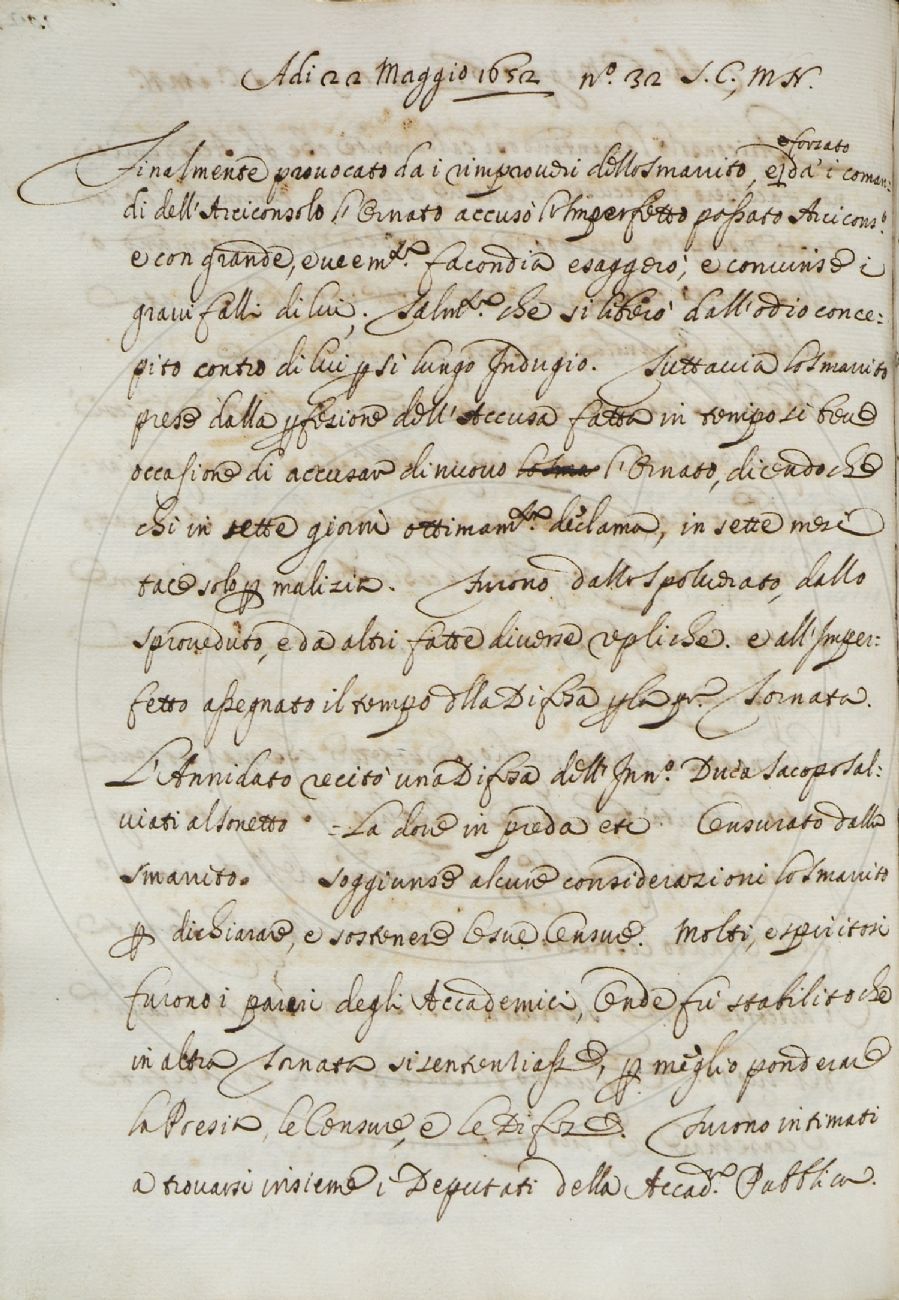 Adi 22 Maggio 1652 nº. 32 S. C., M N.
e forzato
Finalmente provocato da i rimproveri dello Smarrito, e da i coman:
di dell'Arciconsolo l'Ernato accusò l'Imperfetto passato Arcicons.º
e con grande, e veem.te facondia esaggerò, e convinse i
gravi falli di lui; talm.te che si liberò dall'odio conce:
pito contro di lui p sì lungo Indugio. Tuttavia lo Smarrito
prese dalla pfezione dell'Accusa fatta in tempo sì breve
occasione di accusar di nuovo lo Sma l'Ernato, dicendo che
chi in sette giorni ottimam.te declama, in sette mesi
tace solo p malizia. Furono dallo Spolverato, dallo
Sproveduto, e da altri fatte diverse repliche. e all'Imper:
fetto assegnato il tempo dlla Difesa p la pr.a Tornata.
L'Annidato recitò una Difesa dell'Inn.º Duca Jacopo Sal:
viati al Sonetto = La dove in preda etc Censurato dallo
Smarrito. Soggiunse alcune considerazioni lo Smarrito
p dichiarare, e sostenere le sue Censure. Molti, e spiritosi
furono i pareri degli Accademici, Onde fu stabilito che
in altra Tornata si sentenziasse, p meglio ponderare
la Poesia, le Censure, e le Difese. Furono intimati
a trovarsi insieme i Deputati della Accad.a Pubblica.